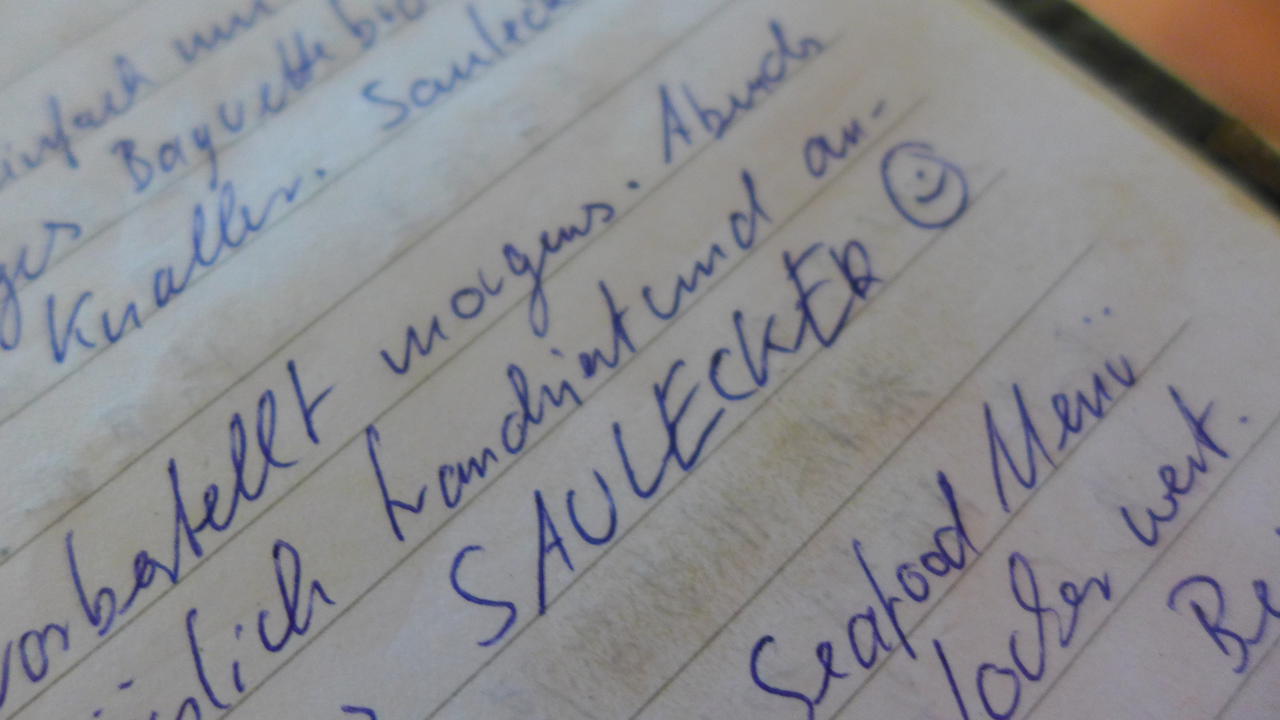 einfach nur
Baguettebrot
Knaller. Saulecker
vorbestellt morgens. Abends
handzart und an-
SAULECKER
Seafood Menü
locker wert.